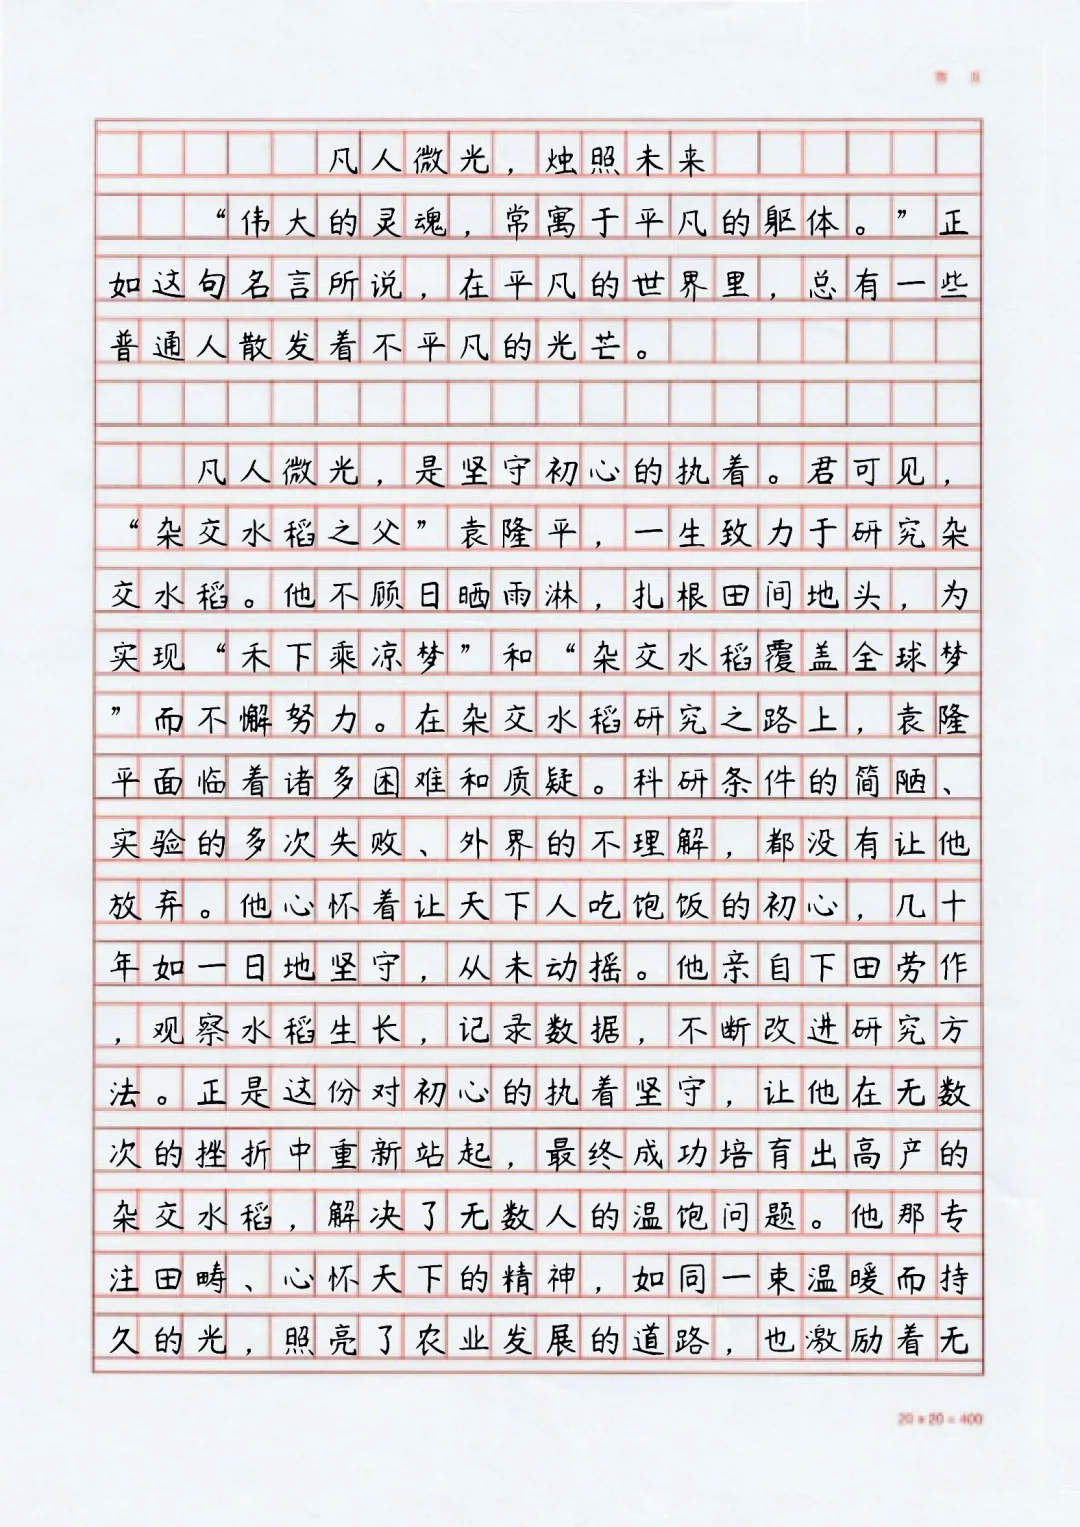 凡人微光，烛照未来
“伟大的灵魂，常寓于平凡的躯体。”正
如这句名言所说，在平凡的世界里，总有一些
普通人散发着不平凡的光芒。
凡人微光，是坚守初心的执着。君可见，
“杂交水稻之父”袁隆平，一生致力于研究杂
交水稻。他不顾日晒雨淋，扎根田间地头，为
实现“禾下乘凉梦”和“杂交水稻覆盖全球梦
”而不懈努力。在杂交水稻研究之路上，袁隆
平面临着诸多困难和质疑。科研条件的简陋、
实验的多次失败、外界的不理解，都没有让他
放弃。他心怀着让天下人吃饱饭的初心，几十
年如一日地坚守，从未动摇。他亲自下田劳作
，观察水稻生长，记录数据，不断改进研究方
法。正是这份对初心的执着坚守，让他在无数
次的挫折中重新站起，最终成功培育出高产的
杂交水稻，解决了无数人的温饱问题。他那专
注田畴、心怀天下的精神，如同一束温暖而持
久的光，照亮了农业发展的道路，也激励着无
20×20=400